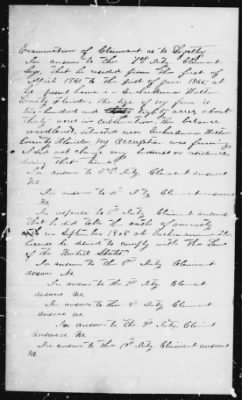 Examination of Claimant as to Loyalty
In answer to the 1st Inty Claimant
Says, that he resided from the first of
April 1861 to the first of June 1865, at
his present home in Euchee Anna Walton
County Florida. the size of my farm is
two hundred and eighty acres about
thirty acres in cultivation the balance
woodland, situated near Euchee Anna Walton
County Florida My Occupation was farming
I did not change my business or residence
during that time
In answer to 2nd Inty Claimant answers
No.
In answer to 3d Inty Claimant answers
No
In response to 4th Inty Claimant answers
that he did take the oath of amnesty
in September 1865 at
because he desired to comply with the Laws
of the United States.
In answer to the 5th Inty Claimant
answers No.
In answer to the 6th Inty Claimant
answers No
In answer to the 7th Inty Claimant
answers No
In answer to the 8th Inty Claimant
answers No
In answer to the 9th Inty Claimant answers
No.